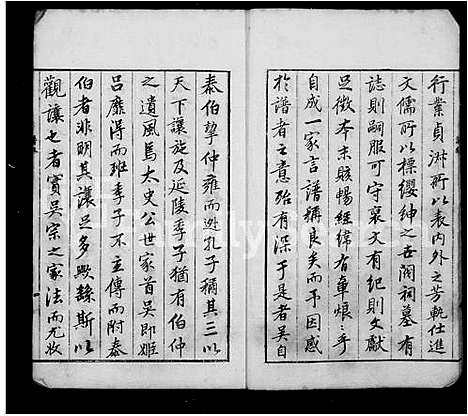 行業貞淑所以表內外之芳軌仕進
文儒所以標纓紳之世閥祠墓有
誌則嗣服可守襃文有紀則文獻
足徵本末賅暢經緯有章煥乎
自成一家言譜稱良矣而予因感
於譜者之意殆有深于是者吳自
泰伯挈仲雍而逃孔子稱其三以
天下讓施及延陵季子猶有伯仲
之遺風焉太史公世家首吳即姬
呂靡得而班季子不立傳而附泰
伯者非明其讓足多歟繇斯以
觀讓之者實吳宗之家法而尤收